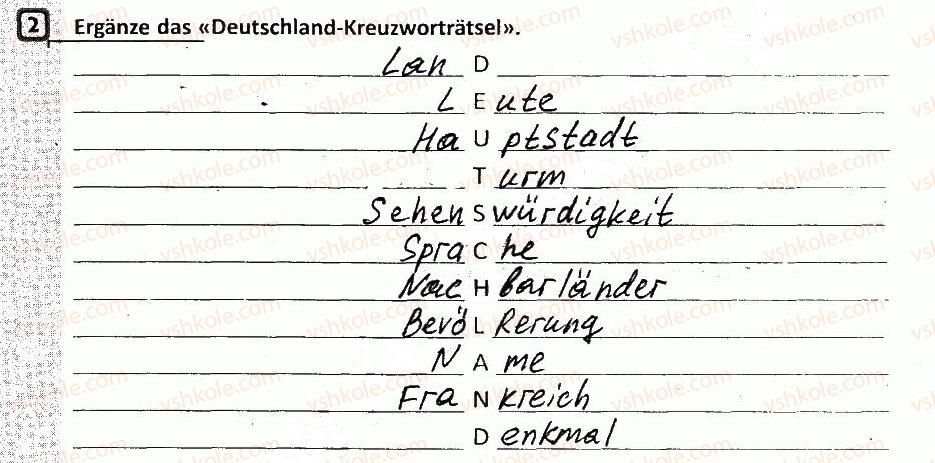 2 Ergänze das «Deutschland-Kreuzworträtsel».
Lan D
L E ute
Ha U ptstadt
T urm
Sehen S würdigkeit
Spra C he
Nac H barländer
Bevö L kerung
N A me
Fra N kreich
D enkmal
vshkole.com